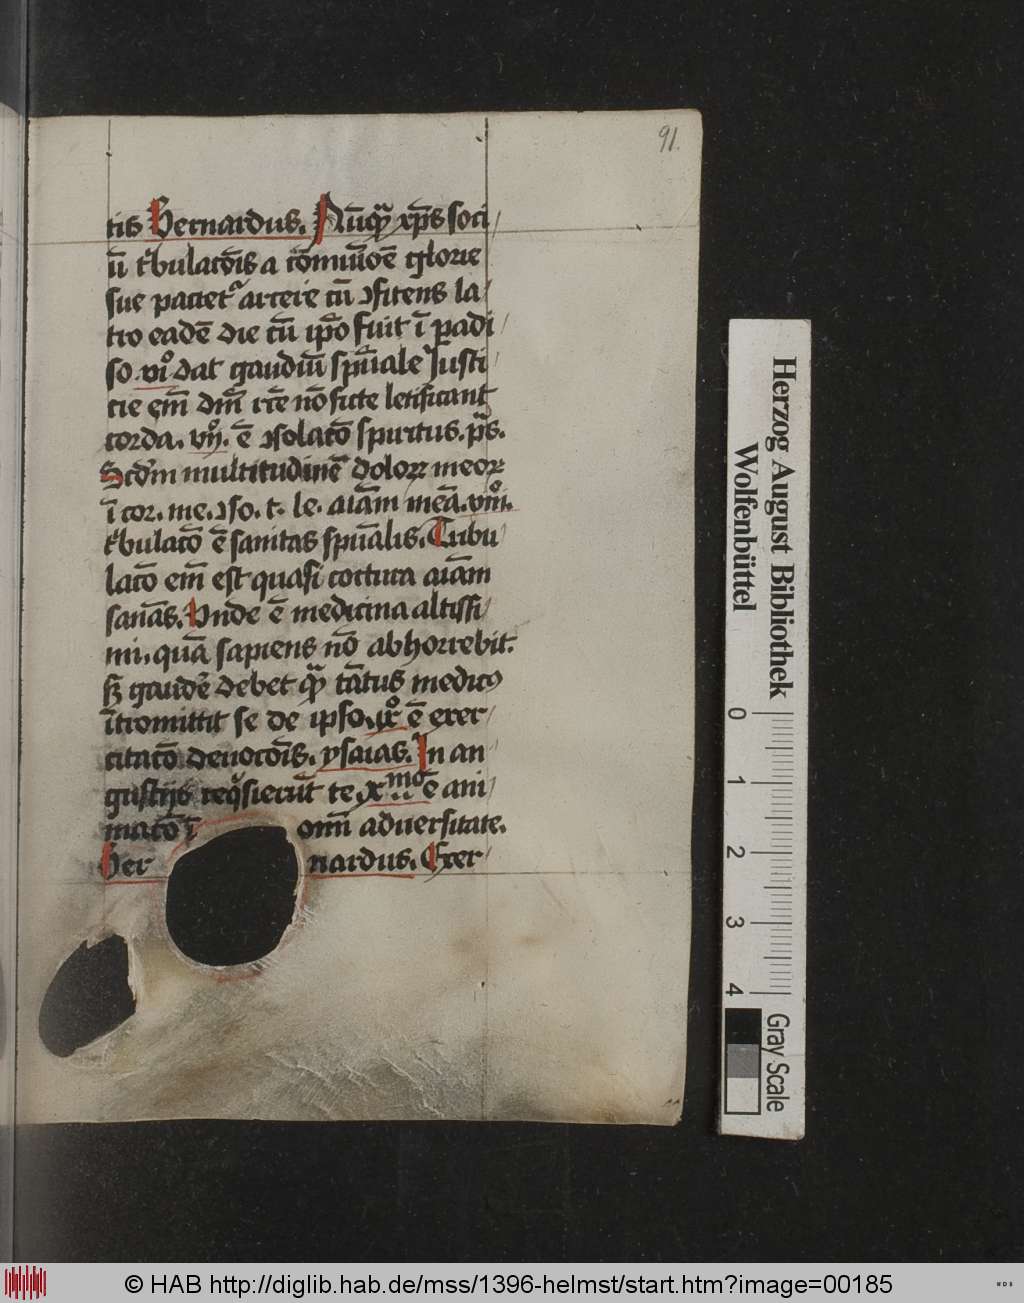 91.
tis Bernardus. Nūqͣ xp̄s soci
ū tͥbulacōis a cōmuīoē glorie
sue paciet᷑ arcere cū ꝯfitens la
tro eadē die cū ip̄o fuit ī padi
so .viͦ. dat gaudiū spūale Justi
cie em̄ dm̄ rc̄e nō ficte letificant
corda. vijͦ. ē ꝯsolacō spiritus. pͣs.
Scdm̄ multitudinē doloꝝ meoꝝ
ī cor. me. ꝯso. t. le. aīam meā. viijͦ.
tͥbulacō ē sanitas spūalis. Tribu
lacō em̄ est quasi coctura aīam
sanās. Vnde ē medicina altissi
mi. quā sapiens nō abhorrebit.
sꝫ gaudē debet qͣ tātus medicꝰ
ītromittit se de ipso. ixͦ ē exer
citacō deuocōis. ysaias. In an
gustijs reqͥsierūt te xmͦ ē ani
macō ī omī aduersitate.
Bernardus. Exer
Herzog August Bibliothek
Wolfenbüttel
0 1 2 3 4
Gray Scale
© HAB http://diglib.hab.de/mss/1396-helmst/start.htm?image=00185
WDB